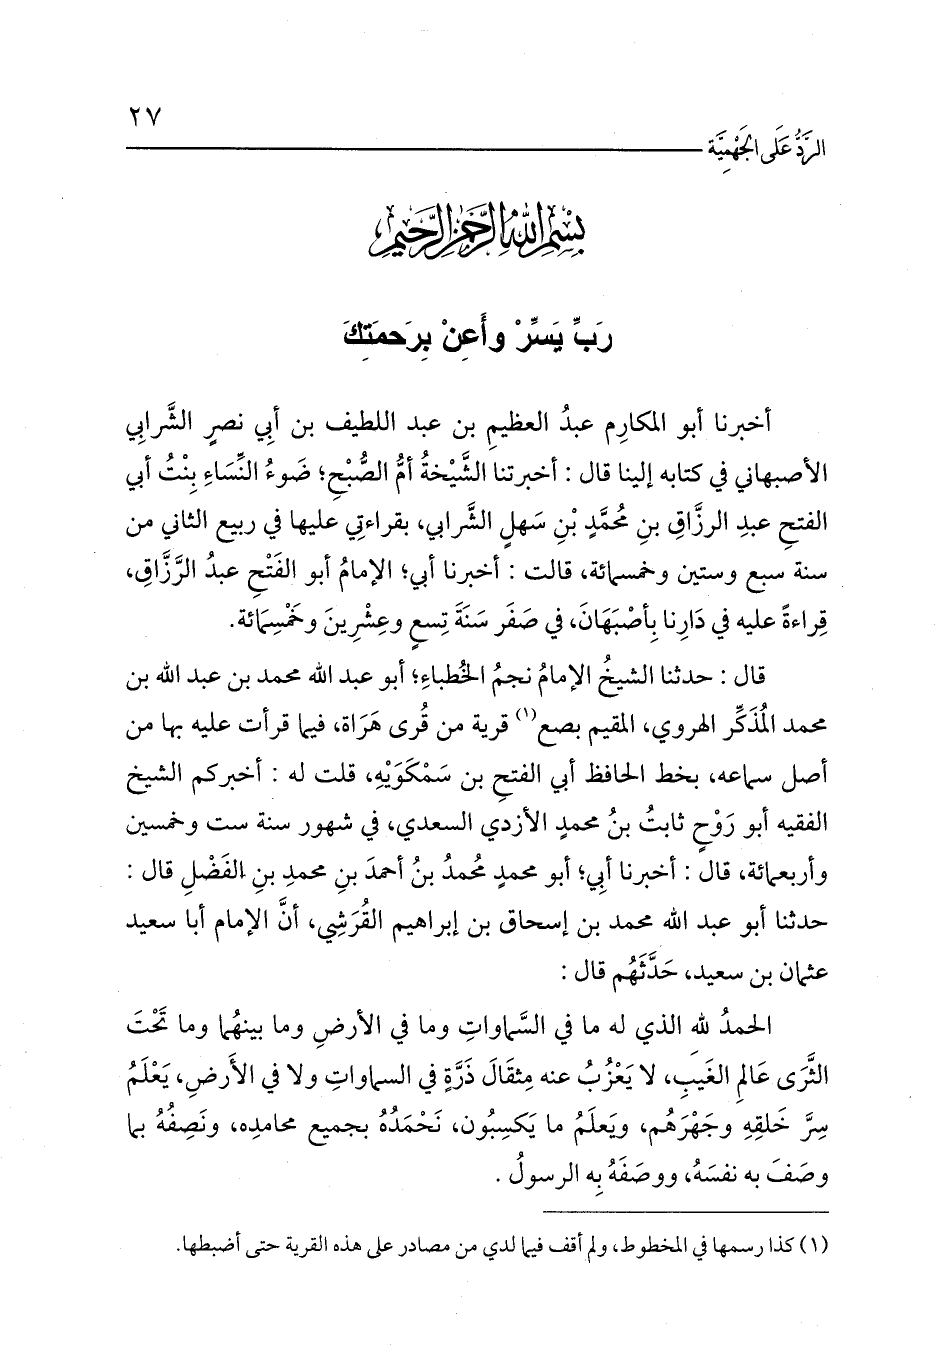 ٢٧
الرَّدُّ عَلَى الجَهْمِيَّة
بِسْمِ اللهِ الرَّحْمٰنِ الرَّحِيمِ
رَبِّ يَسِّرْ وأَعِنْ بِرَحمَتِكَ
أخبرنا أبو المكارِم عبدُ العظيمِ بن عبد اللطيف بن أبي نصرٍ الشَّرابي
الأصبهاني في كتابه إلينا قال : أخبرتنا الشَّيْخةُ أمُّ الصُّبْحِ؛ ضَوءُ النِّسَاءِ بِنْتُ أبي
الفتحِ عبدِ الرزَّاقِ بنِ مُحمَّدٍ بْنِ سَهلٍ الشَّرابي، بقراءتي عليها في ربيع الثاني من
سنة سبع وستين وخمسمائة، قالت : أخبرنا أبي؛ الإمامُ أبو الفَتْحِ عبدُ الرَّزَّاقِ،
قِراءةً عليه في دَارِنا بِأَصْبَهَانَ، في صَفَر سَنَةَ تِسعٍ وعِشْرِينَ وخَمْسِمَائة.
قال : حدثنا الشيخُ الإمامُ نجمُ الخُطباءِ؛ أبو عبد الله محمد بن عبد الله بن
محمد المُذَكِّر الهروي، المقيم بصع(١) قرية من قُرى هَرَاة، فيما قرأت عليه بها من
أصل سماعه، بخط الحافظ أبي الفتحِ بن سَمْكَوَيْهِ، قلت له : أخبركم الشيخ
الفقيه أبو رَوْحٍ ثابتُ بنُ محمدٍ الأزدي السعدي، في شهور سنة ست وخمسين
وأربعمائة، قال : أخبرنا أبي؛ أبو محمدٍ مُحمدُ بنُ أحمدَ بنِ محمدِ بنِ الفَضْلِ قال :
حدثنا أبو عبد الله محمد بن إسحاق بن إبراهيم القُرَشِي، أنَّ الإمام أبا سعيد
عثمان بن سعيد، حَدَّثَهُم قال :
الحمدُ لله الذي له ما في السَّماواتِ وما في الأرضِ وما بينهُما وما تَحْتَ
الثَّرَى عَالمِ الغَيبِ، لا يَعْزُبُ عنه مِثقَالَ ذَرَّةٍ في السماواتِ ولا في الأَرضِ، يَعْلَمُ
سِرَّ خَلقِهِ وجَهْرَهُم، ويَعلَمُ ما يَكسِبُون، نَحْمَدُهُ بجميع محامدِه، ونَصِفُهُ بما
وصَفَ به نفسَهُ، ووصَفَهُ بِه الرسولُ .
(١) كذا رسمها في المخطوط، ولم أقف فيما لدي من مصادر على هذه القرية حتى أضبطها.